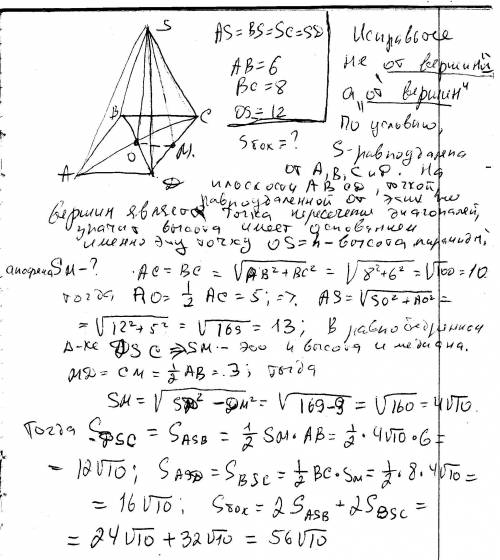 S
AS=BS=SC=SD
AB=6
BC=8
OS=12
Sбок=?
B
C
O
M
A
D
Исправьте
не от вершины
а "от вершин"
По условию,
S-равноудалена
от A, B, C и D. На
плоскости ABCD, точкой,
равноудаленной от этих
вершин является точка пересечения диагоналей,
значит высота имеет основанием
именно эту точку OS=h-высота пирамиды
апофема SM-? AC=BC=√AB²+BC²=√8²+6²=√100=10
тогда AO=½AC=5; =>. AS=√SO²+AO²=
=√12²+5²=√169=13; В равнобедренном
Δ-ке DSC => SM - это и высота и медиана.
MD=CM=½AB=3; тогда
SM=√SD²-DM²=√169-9=√160=4√10.
Тогда S DSC=S ASB=½SM·AB=½·4√10·6=
=12√10; S ASD=S BSC=½BC·SM=½·8·4√10=
=16√10; Sбок=2S ASB+2S BSC=
=24√10+32√10=56√10